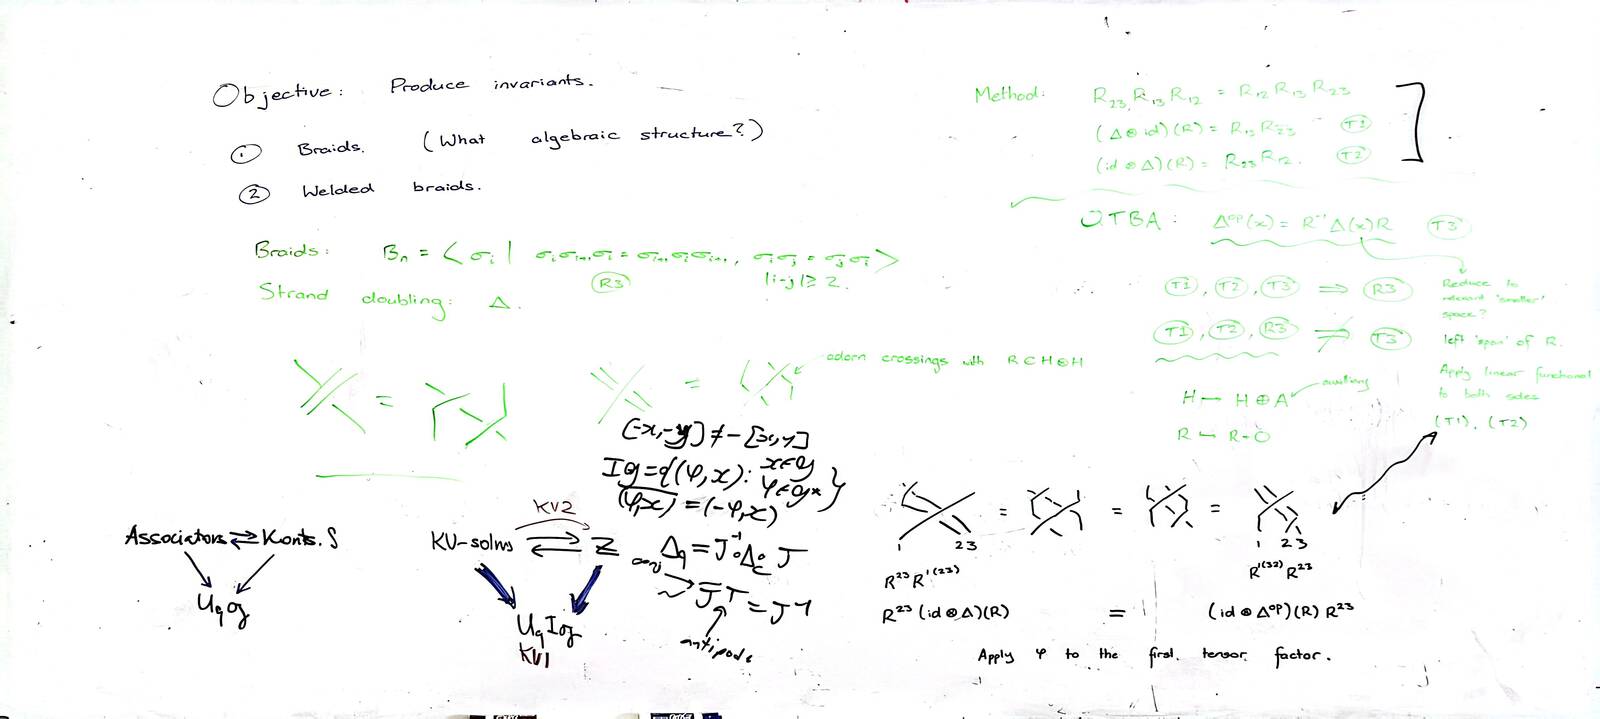 Objective: Produce invariants.
① Braids. (What algebraic structure?)
② Welded braids.
Braids: Bₙ = < σᵢ | σᵢσᵢ₊₁σᵢ = σᵢ₊₁σᵢσᵢ₊₁, σᵢσⱼ = σⱼσᵢ >
(R3) |i-j| ≥ 2.
Strand doubling: Δ.
= =
adorn crossings with R∈H⊗H
Method: R₂₃R₁₃R₁₂ = R₁₂R₁₃R₂₃
(Δ⊗id)(R) = R₁₃R₂₃ (T1)
(id⊗Δ)(R) = R₂₃R₁₂. (T2)
QTBA: Δᵒᵖ(x) = R⁻¹Δ(x)R (T3)
(T1), (T2), (T3) ⇒ (R3)
(T1), (T2), (R3) ⇏ (T3)
Reduce to
relevant 'smaller'
space?
left 'span' of R.
Apply linear functional
to both sides
(T1), (T2)
H ↦ H⊕A auxiliary
R ↦ R+O
[-x,-y] ≠ -[x,y]
Ig = {(φ,x): x∈g
φ∈g*}
(φ,x) = (-φ,x)
Associators ⇄ Konts. S
U_q g
KV2
KV-solns ⇄ Z
U_q Ig
KV1
Δ_q = J⁻¹∘Δ_c∘J
J^T = J⁻¹
antipode
= = =
1 23 1 23
R²³R¹⁽²³⁾ R¹⁽³²⁾R²³
R²³(id⊗Δ)(R) = (id⊗Δᵒᵖ)(R)R²³
Apply φ to the first tensor factor.